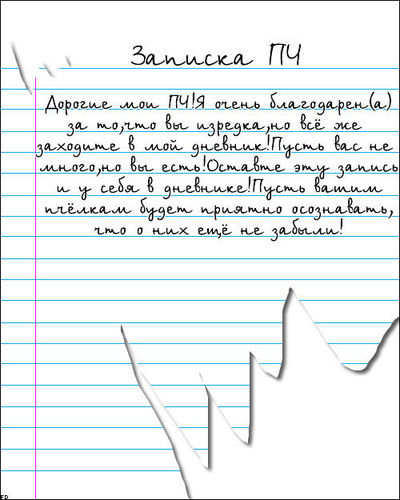 Записка ПЧ
Дорогие мои ПЧ!Я очень благодарен(а)
за то,что вы изредка,но всё же
заходите в мой дневник!Пусть вас не
много,но вы есть!Оставте эту запись
и у себя в дневнике!Пусть вашим
пчёлкам будет приятно осознавать,
что о них ещё не забыли!
FD